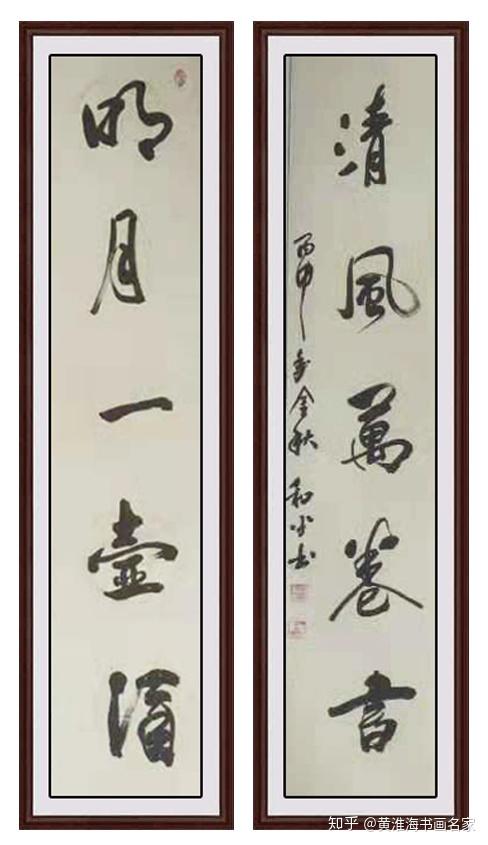 明月一壺酒
清風萬卷書
丙申年金秋 和平书
知乎 @黄淮海书画名家